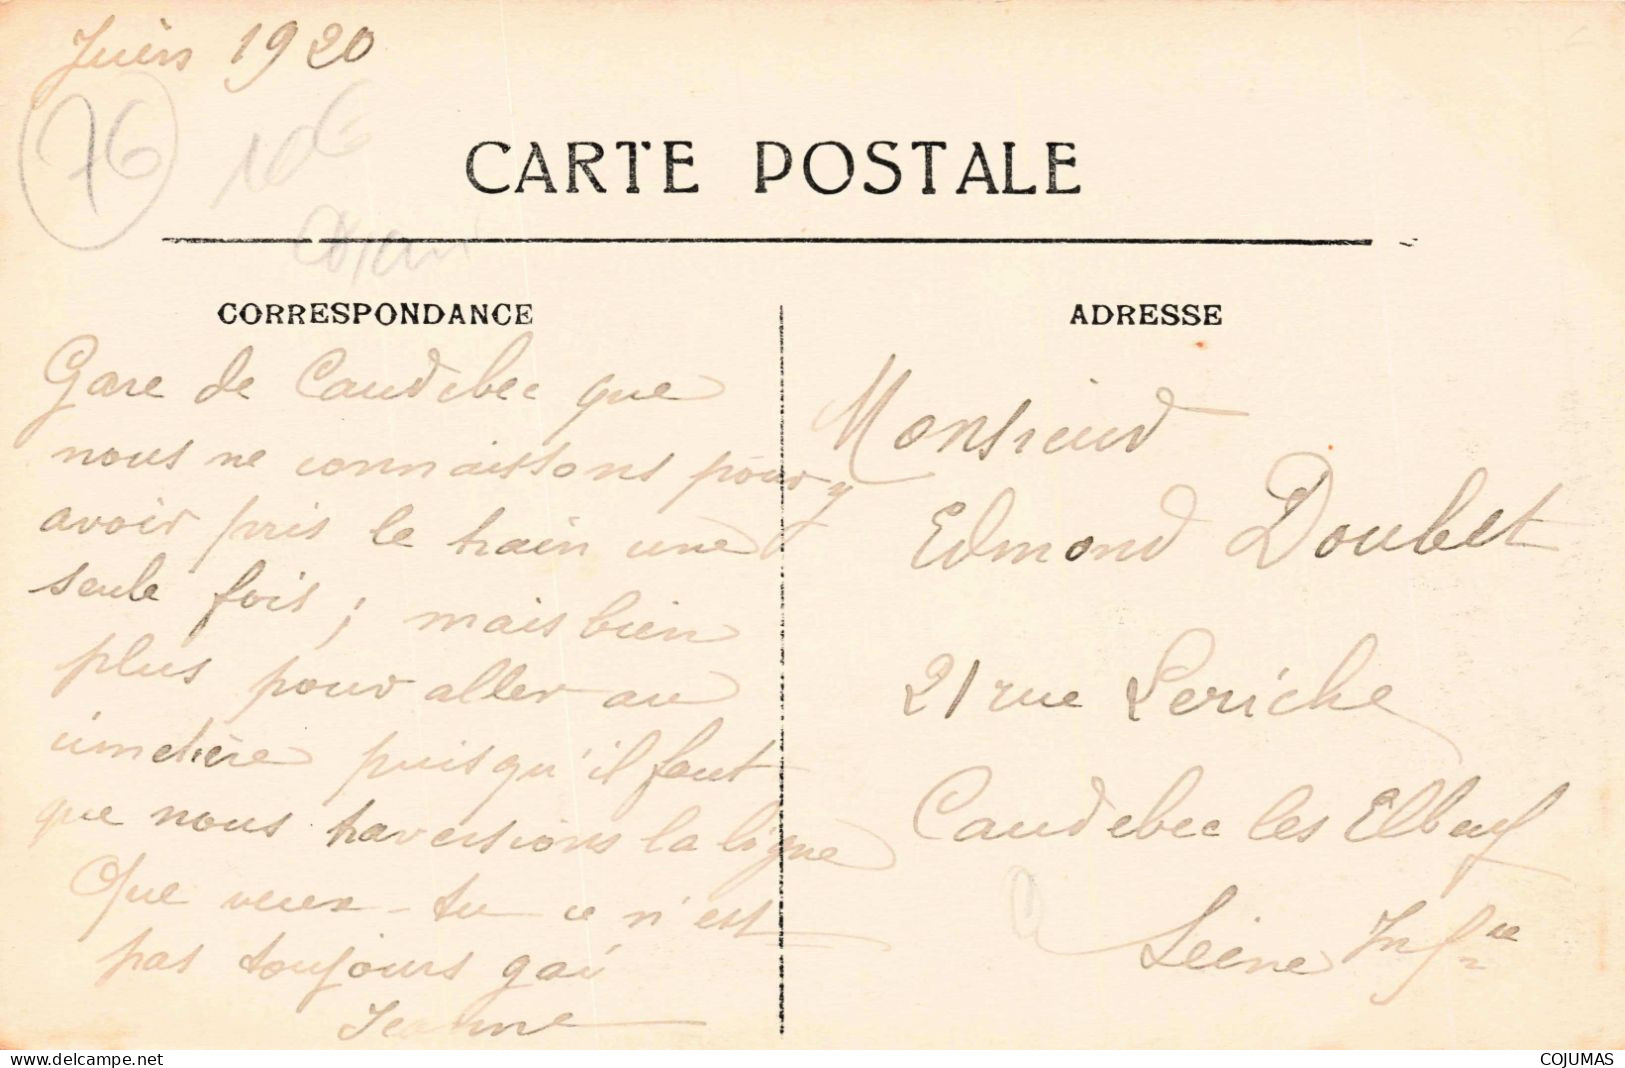 Juin 1920
76
10€
CARTE POSTALE
CORRESPONDANCE
Gare de Caudebec que
nous ne connaissons pour y
avoir pris le train une
seule fois ; mais bien
plus pour aller au
cimetière puisqu'il faut
que nous traversions la ligne
Que veux-tu ce n'est
pas toujours gai
Jeanne
ADRESSE
Monsieur
Edmond Doubet
21 rue Leriche
Caudebec les Elbeuf
Seine Infre
delcampe.net
COJUMAS